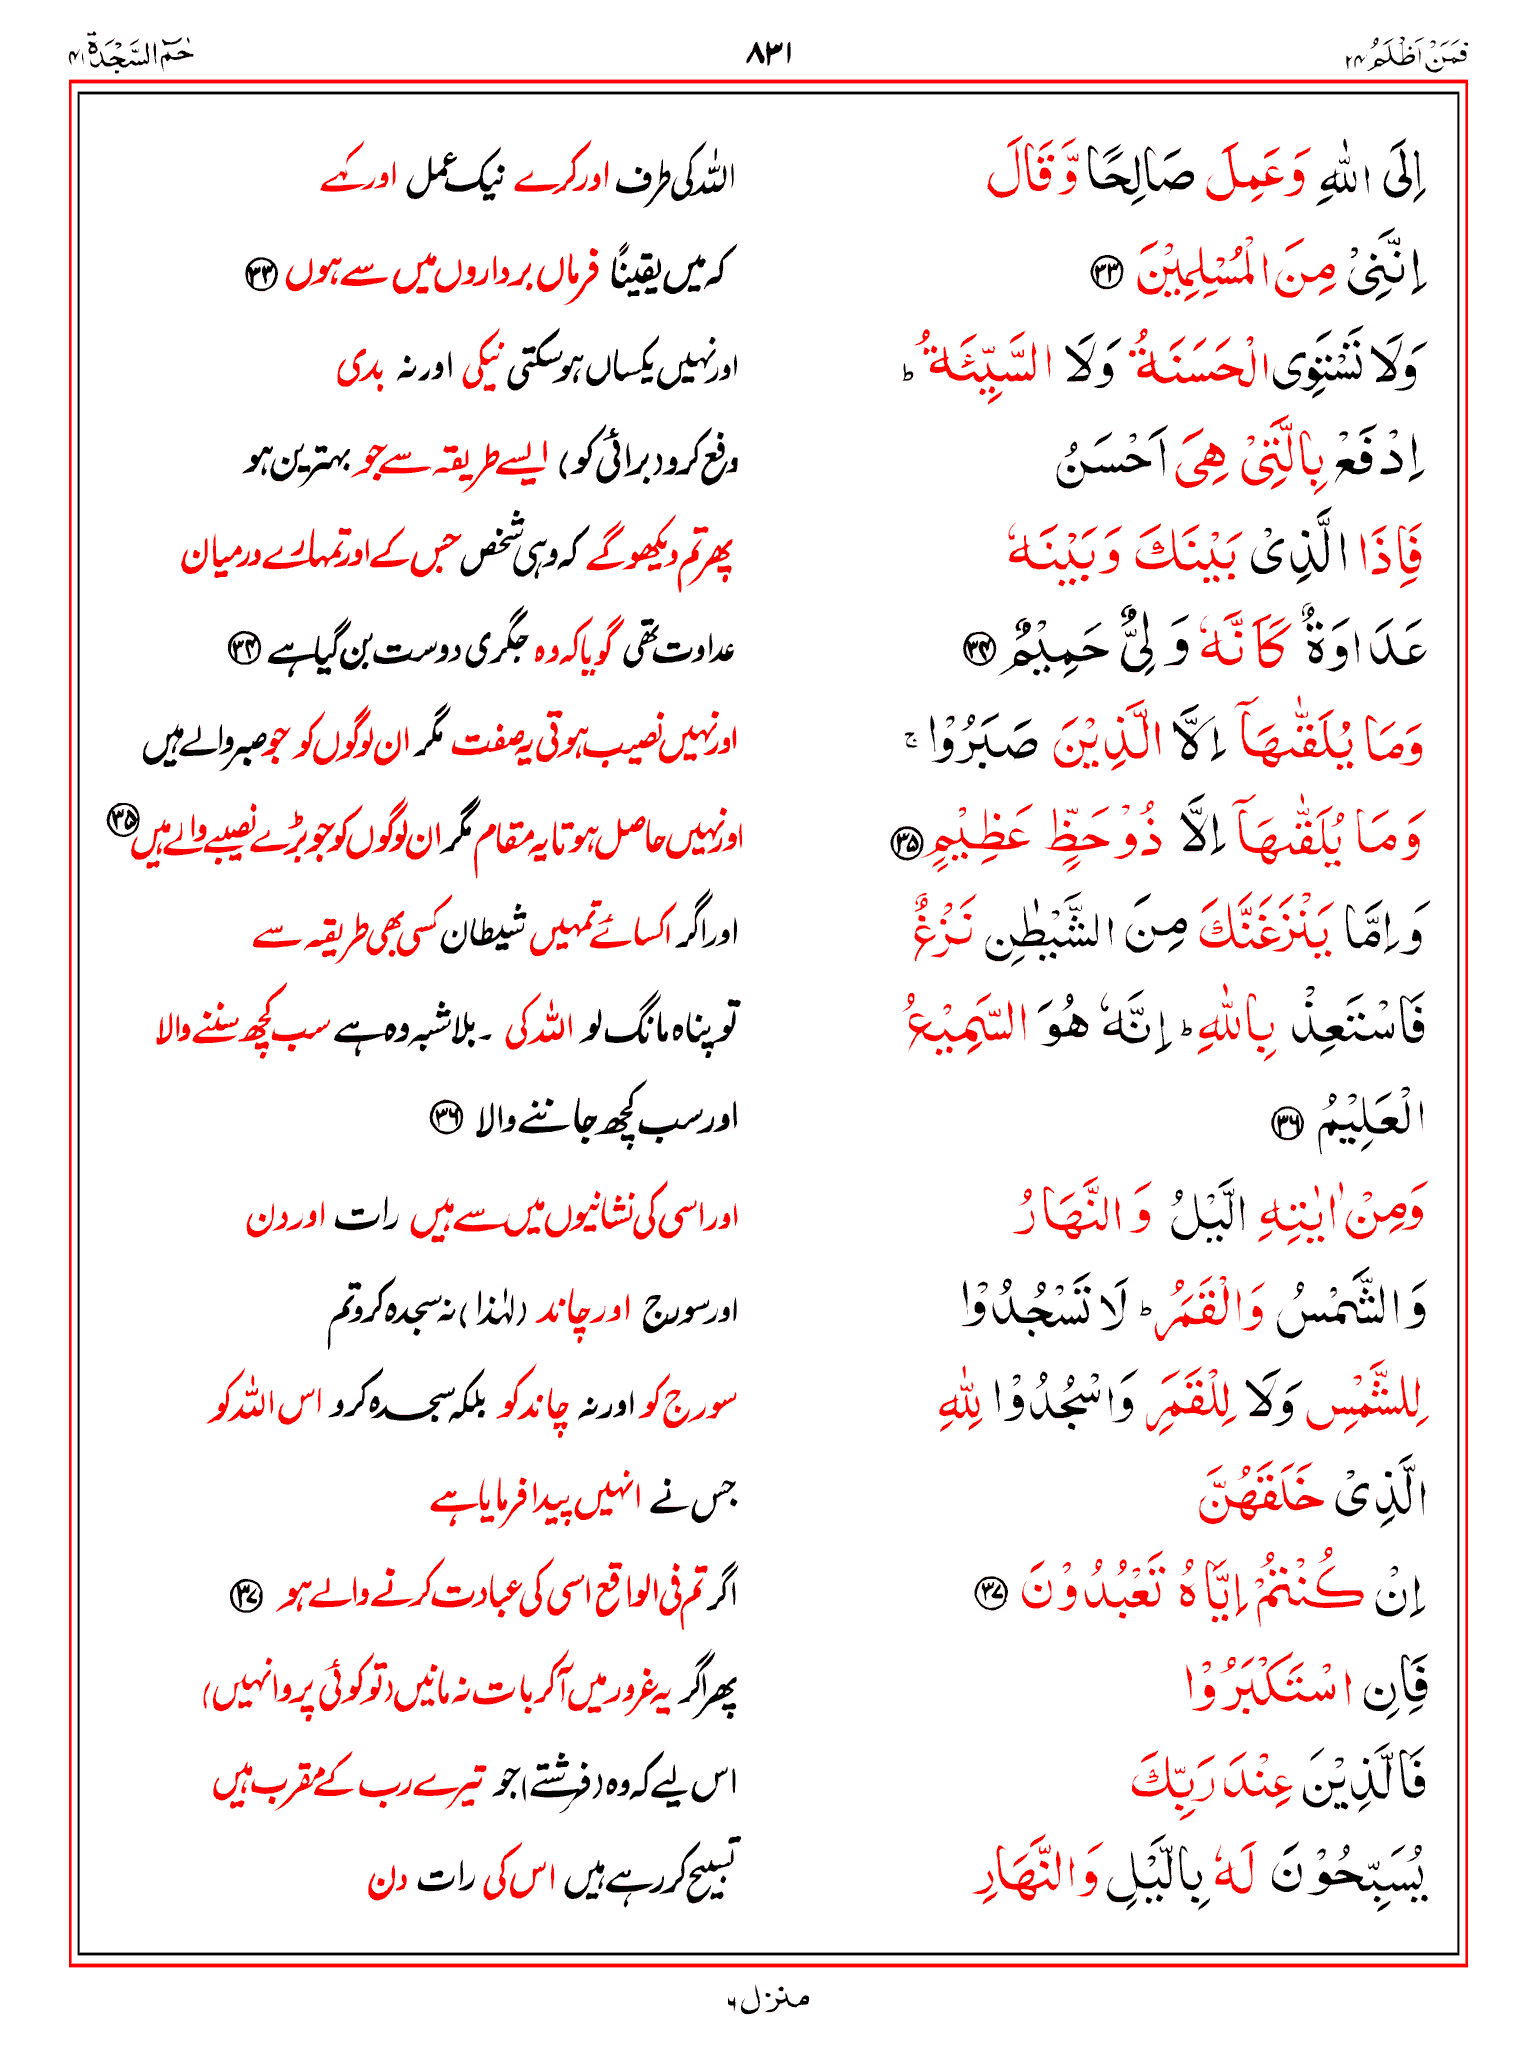 فَمَنْ اَظْلَمُ ۲۴ ۸۳۱ حٰمٓ السَّجْدَة ۴۱
اِلَى اللّٰهِ وَعَمِلَ صَالِحًا وَّقَالَ اللہ کی طرف اور کرے نیک عمل اور کہے
اِنَّنِىْ مِنَ الْمُسْلِمِيْنَ ﴿۳۳﴾ کہ میں یقیناً فرماں برداروں میں سے ہوں ﴿۳۳﴾
وَلَا تَسْتَوِى الْحَسَنَةُ وَلَا السَّيِّئَةُ ؕ اور نہیں یکساں ہوسکتی نیکی اور نہ بدی
اِدْفَعْ بِالَّتِىْ هِىَ اَحْسَنُ دفع کرو (برائی کو) ایسے طریقہ سے جو بہترین ہو
فَاِذَا الَّذِىْ بَيْنَكَ وَبَيْنَهٗ پھر تم دیکھو گے کہ وہی شخص جس کے اور تمہارے درمیان
عَدَاوَةٌ كَاَنَّهٗ وَلِىٌّ حَمِيْمٌ ﴿۳۴﴾ عداوت تھی گویا کہ وہ جگری دوست بن گیا ہے ﴿۳۴﴾
وَمَا يُلَقّٰىهَاۤ اِلَّا الَّذِيْنَ صَبَرُوْا ۚ اور نہیں نصیب ہوتی یہ صفت مگر ان لوگوں کو جو صبر والے ہیں
وَمَا يُلَقّٰىهَاۤ اِلَّا ذُوْ حَظٍّ عَظِيْمٍ ﴿۳۵﴾ اور نہیں حاصل ہوتا یہ مقام مگر ان لوگوں کو جو بڑے نصیبے والے ہیں ﴿۳۵﴾
وَاِمَّا يَنْزَغَنَّكَ مِنَ الشَّيْطٰنِ نَزْغٌ اور اگر اکسائے تمہیں شیطان کسی بھی طریقہ سے
فَاسْتَعِذْ بِاللّٰهِ ؕ اِنَّهٗ هُوَ السَّمِيْعُ تو پناہ مانگ لو اللہ کی ۔ بلاشبہ وہ ہے سب کچھ سننے والا
الْعَلِيْمُ ﴿۳۶﴾ اور سب کچھ جاننے والا ﴿۳۶﴾
وَمِنْ اٰيٰتِهِ الَّيْلُ وَالنَّهَارُ اور اسی کی نشانیوں میں سے ہیں رات اور دن
وَالشَّمْسُ وَالْقَمَرُ ؕ لَا تَسْجُدُوْا اور سورج اور چاند (لہٰذا) نہ سجدہ کرو تم
لِلشَّمْسِ وَلَا لِلْقَمَرِ وَاسْجُدُوْا لِلّٰهِ سورج کو اور نہ چاند کو بلکہ سجدہ کرو اس اللہ کو
الَّذِىْ خَلَقَهُنَّ جس نے انہیں پیدا فرمایا ہے
اِنْ كُنْتُمْ اِيَّاهُ تَعْبُدُوْنَ ﴿۳۷﴾ اگر تم فی الواقع اسی کی عبادت کرنے والے ہو ﴿۳۷﴾
فَاِنِ اسْتَكْبَرُوْا پھر اگر یہ غرور میں آکر بات نہ مانیں (تو کوئی پروا نہیں)
فَالَّذِيْنَ عِنْدَ رَبِّكَ اس لیے کہ وہ (فرشتے) جو تیرے رب کے مقرب ہیں
يُسَبِّحُوْنَ لَهٗ بِالَّيْلِ وَالنَّهَارِ تسبیح کر رہے ہیں اس کی رات دن
منزل ۶